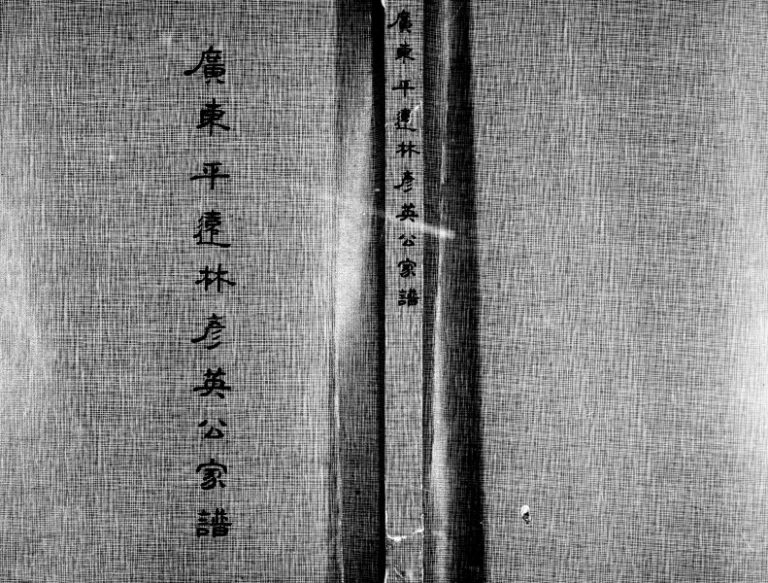 廣東平遠林彥英公家譜
廣東平遠林彥英公家譜